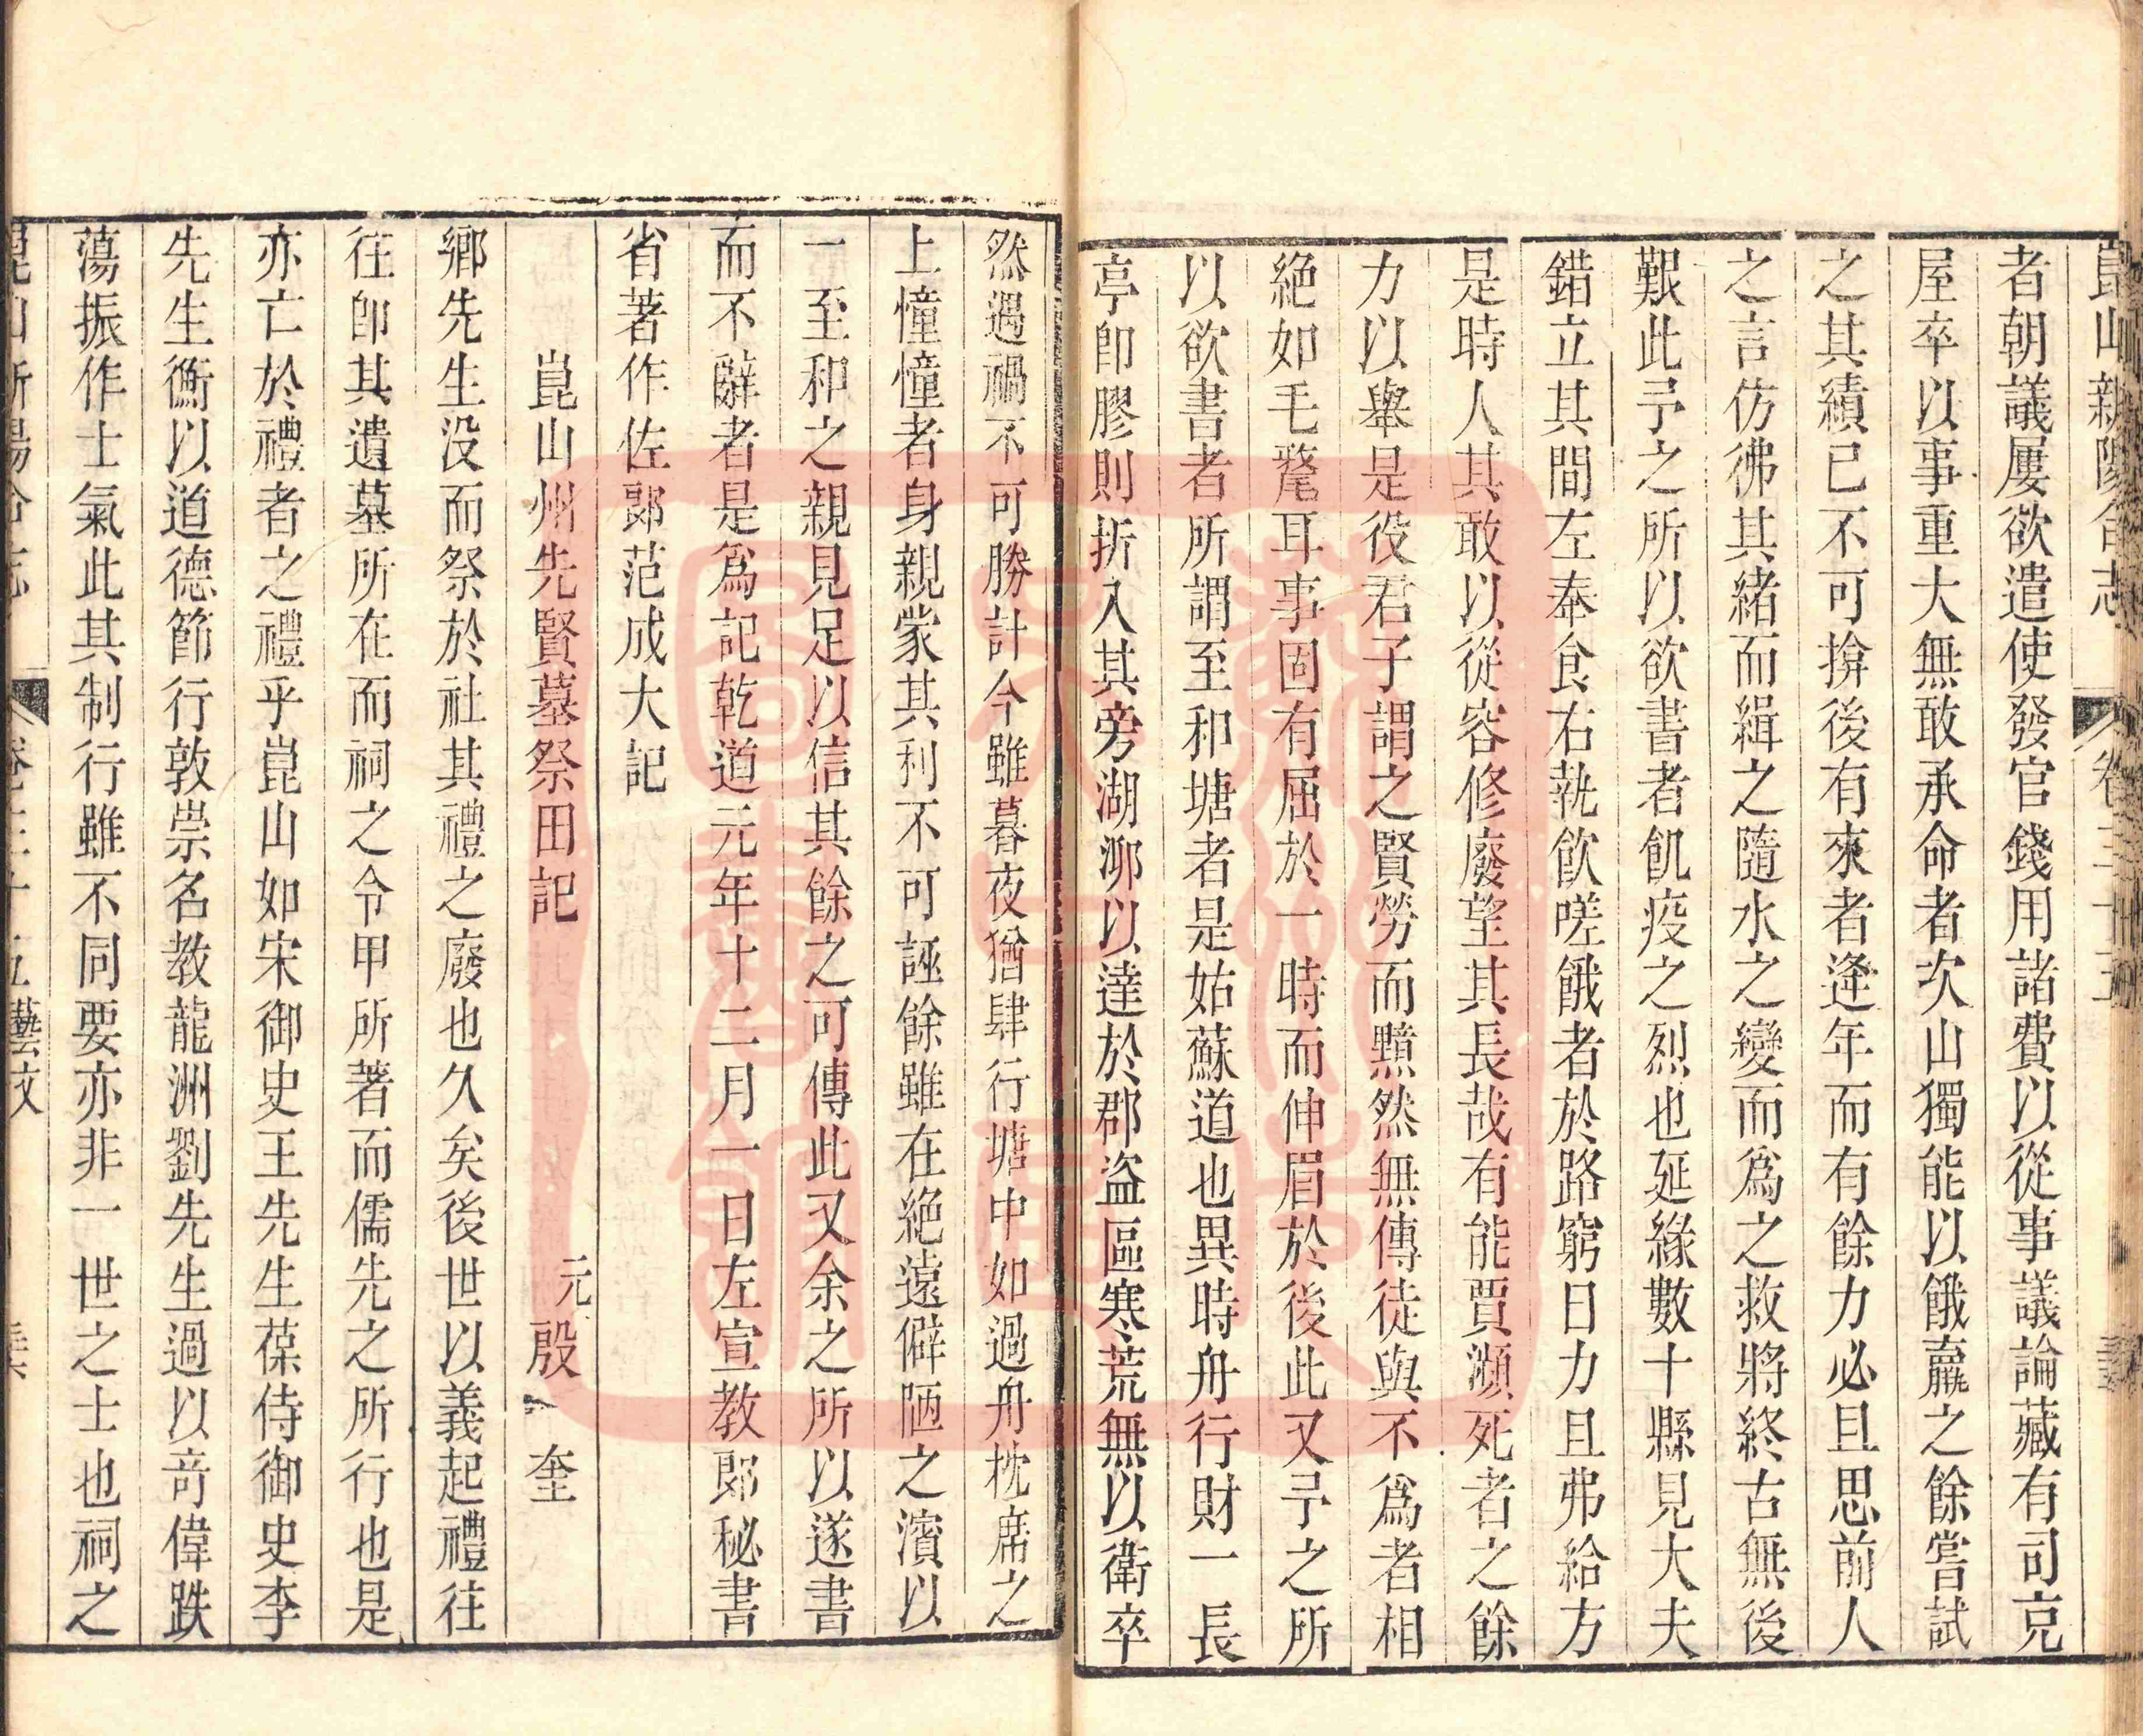 崑山新陽合志
卷三十五
者朝議屢欲遣使發官錢用諸費以從事議論藏有司克
屋卒以事重大無敢承命者次山獨能以餓羸之餘嘗試
之其績已不可揜後有來者逢年而有餘力必且思前人
之言仿彿其緒而緝之隨水之變而爲之救將終古無後
艱此予之所以欲書者飢疫之烈也延緣數十縣見大夫
錯立其間左奉食右執飮嗟餓者於路窮日力且弗給方
是時人其敢以從容修廢望其長哉有能賈瀕死者之餘
力以舉是役君子謂之賢勞而黯然無傳徒與不爲者相
絶如毛氂耳事固有屈於一時而伸眉於後此又予之所
以欲書者所謂至和塘者是姑蘇道也異時舟行財一長
亭卽膠則折入其旁湖泖以達於郡盗區寒荒無以衛卒
然遇禍不可勝計今雖暮夜猶肆行塘中如過舟枕席之
上憧憧者身親蒙其利不可誣餘雖在絶遠僻陋之濱以
一至和之親見足以信其餘之可傳此又余之所以遂書
而不辭者是爲記乾道元年十二月一日左宣教郞秘書
省著作佐郞范成大記
崑山州先賢墓祭田記
元 殷 奎
鄉先生没而祭於社其禮之廢也久矣後世以義起禮往
往卽其遺墓所在而祠之令甲所著而儒先之所行也是
亦亡於禮者之禮乎崑山如宋御史王先生葆侍御史李
先生衡以道德節行敦崇名教龍洲劉先生過以竒偉跌
蕩振作士氣此其制行雖不同要亦非一世之士也祠之
崑山新陽合志
卷三十五藝文